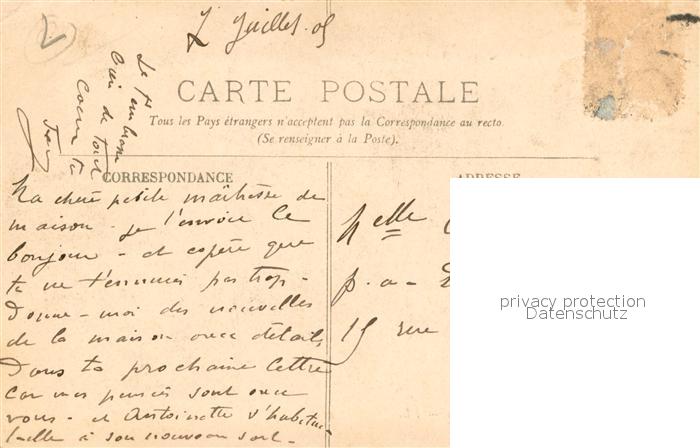 2 Juillet 05
CARTE POSTALE
Tous les Pays étrangers n'acceptent pas la Correspondance au recto.
(Se renseigner à la Poste).
CORRESPONDANCE
ADRESSE
Ma chère petite maîtresse de
maison - je t'envoie le
bonjour - et espère que
tu ne t'ennuies pas trop -
Donne-moi des nouvelles
de la maison avec détails
Dans ta prochaine lettre
car mes pensées sont avec
vous - et Antoinette s'habitue-
t-elle à son nouveau sort -
de tout
coeur
Melle
p. a -
15 rue
privacy protection
Datenschutz